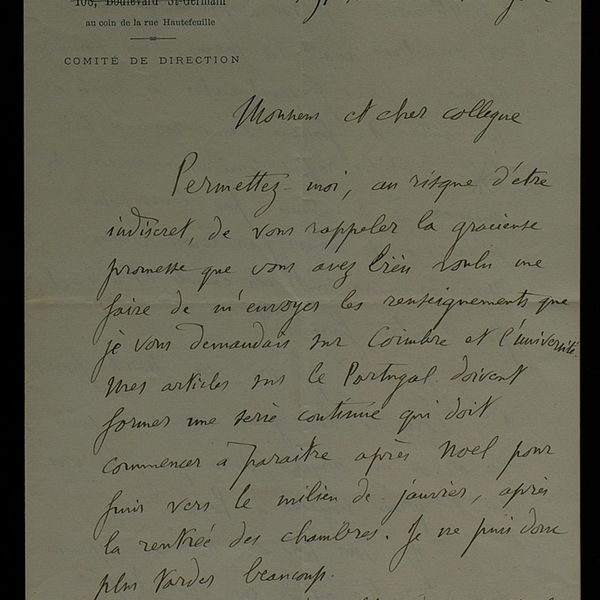 108, Boulevard St-Germain
au coin de la rue Hautefeuille
COMITÉ DE DIRECTION
Monsieur et cher collegue
Permettez-moi, au risque d'être
indiscret, de vous rappeler la gracieuse
promesse que vous avez bien voulu me
faire de m'envoyer les renseignements que
je vous demandais sur Coimbre et l'université.
Mes articles sur le Portugal doivent
former une serie continue qui doit
commencer à paraitre après Noel pour
finir vers le milieu de janvier, après
la rentrée des chambres. Je ne puis donc
plus tarder beaucoup.